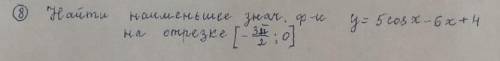 ⑧ Найти наименьшее знач. ф-и y = 5cosx - 6x + 4
на отрезке [-3π/2; 0]